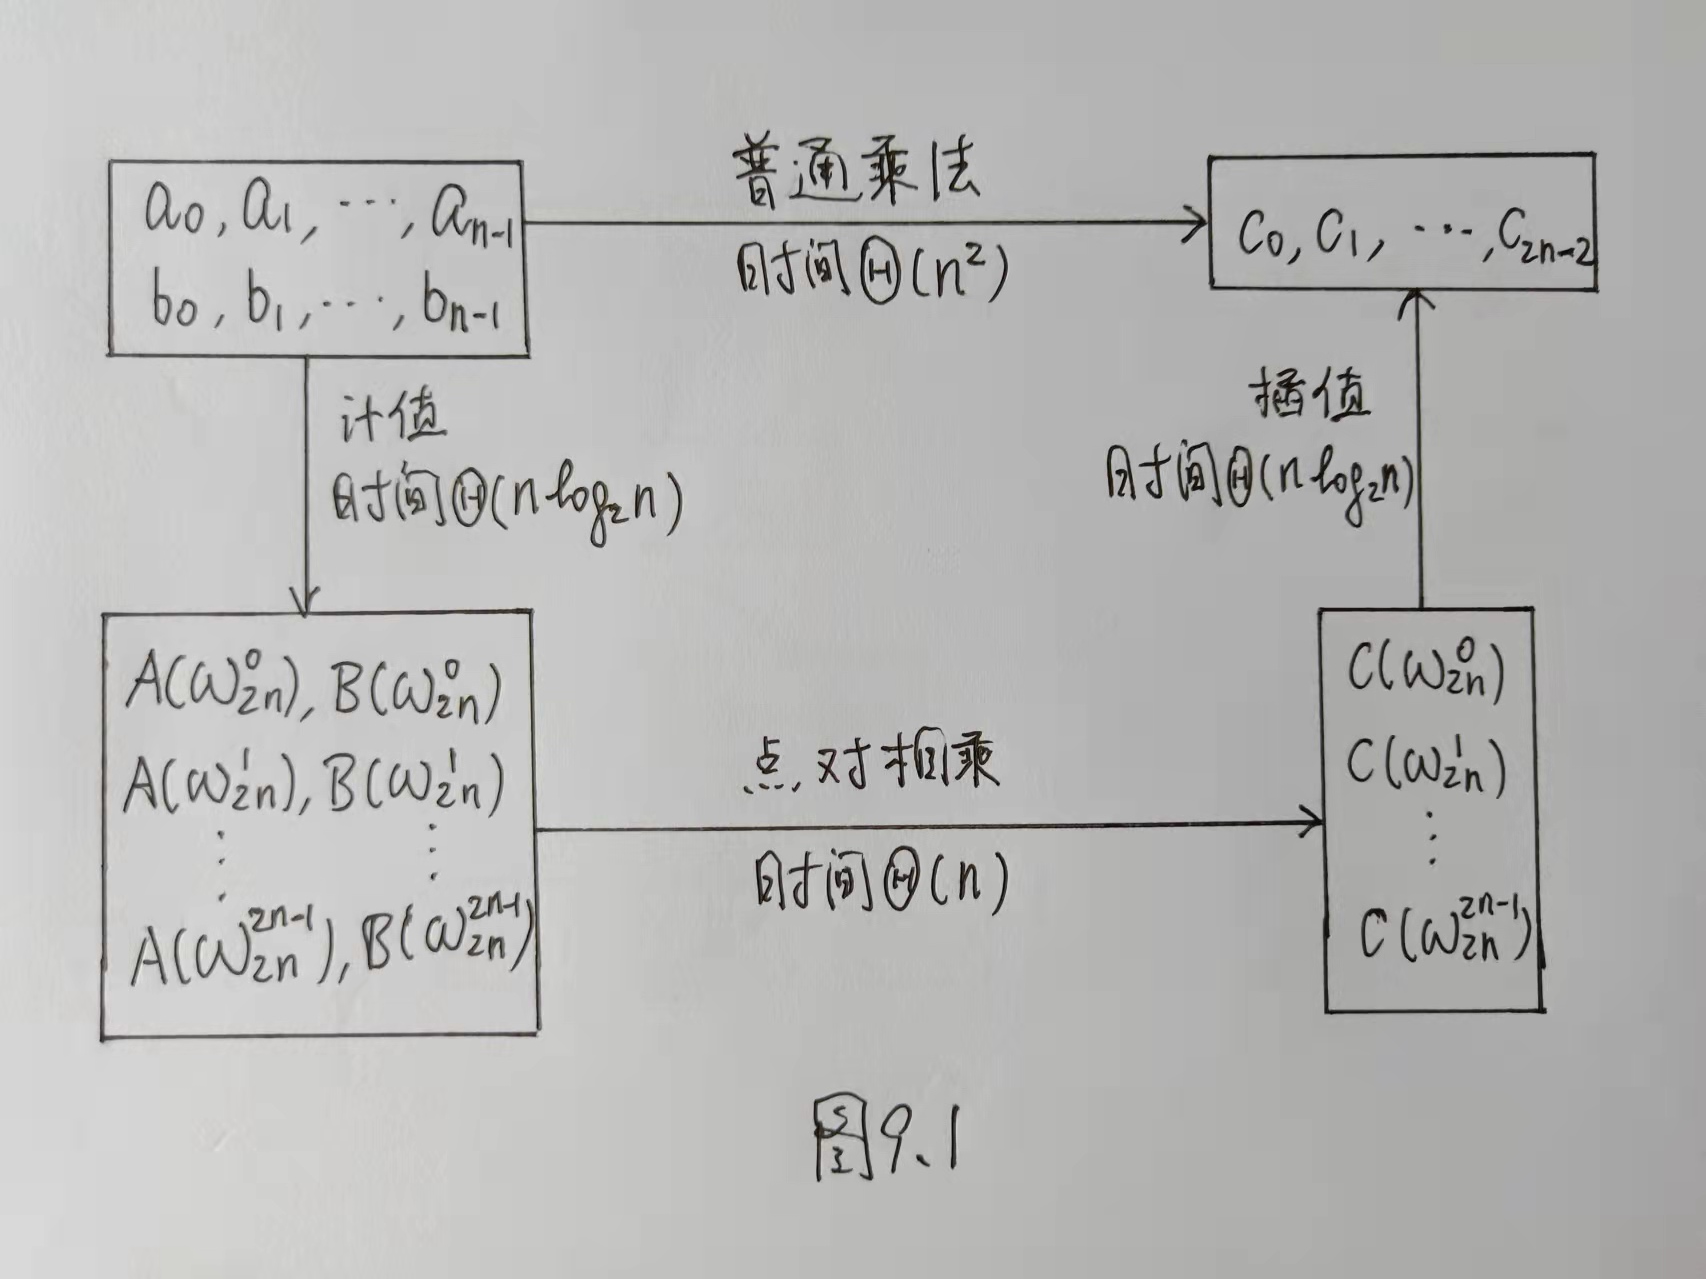 a₀, a₁, ⋯, aₙ₋₁
b₀, b₁, ⋯, bₙ₋₁
普通乘法
时间Θ(n²)
c₀, c₁, ⋯, c₂ₙ₋₂
计值
时间Θ(n log₂n)
插值
时间Θ(n log₂n)
A(ω₂ₙ⁰), B(ω₂ₙ⁰)
A(ω₂ₙ¹), B(ω₂ₙ¹)
⋮ ⋮
A(ω₂ₙ²ⁿ⁻¹), B(ω₂ₙ²ⁿ⁻¹)
点对相乘
时间Θ(n)
C(ω₂ₙ⁰)
C(ω₂ₙ¹)
⋮
C(ω₂ₙ²ⁿ⁻¹)
图9.1